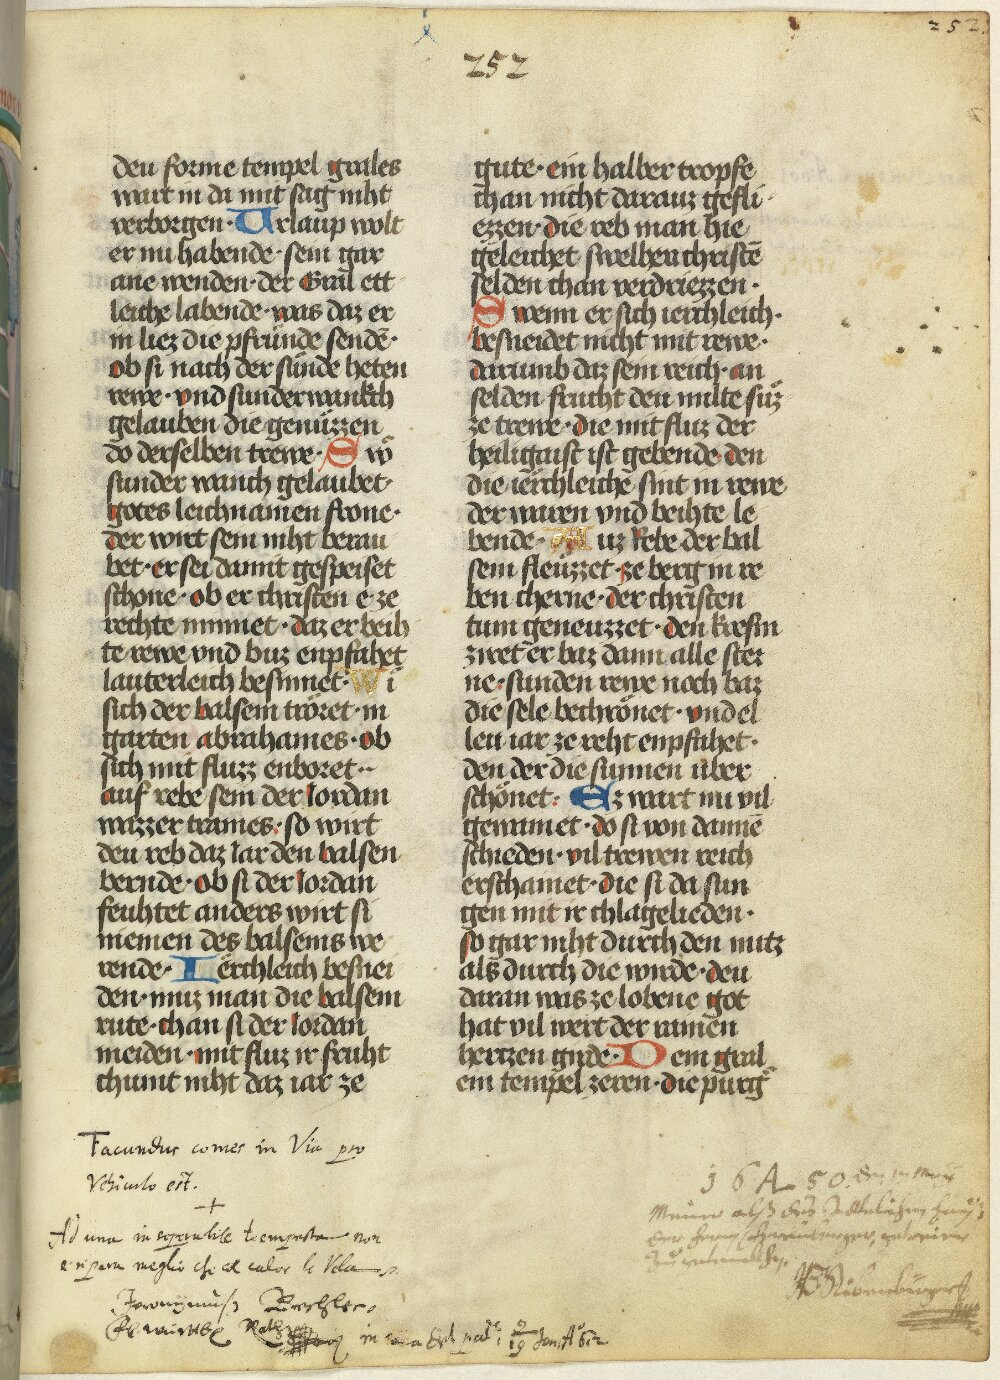 252
252
deu forme tempel grales
wart in da mit sag niht
verborgen · Urlaup wolt
er nu habende · sein gar
ane wenden · der Gral ett
leiche labende · was daz er
in liez die pfrunde sendē ·
ob si nach der sünde heten
rewe · vnd sunder wankch
gelauben die genüzzen
do derselben trewe · Swo
sunder wanch gelaubet ·
gotes leichnamen frone ·
der wirt sein niht berau
bet · er sei damit gespeiset
schone · ob er christen e ze
rechte nimet · daz er beih
te rewe vnd buz enpfahet
lauterleich besinnet · Wi
sich der balsem tröret · in
garten abrahames · ob
sich mit fluzz enboret ·
auf rebe sein der Iordan
wazzer trames · so wirt
deu reb daz Iar den balsen
bernde · ob si der Iordan
feuhtet anders wirt si
niemen des balsems we
rende · Ierchleich besnei
den · muz man die balsem
rute · chan si der Iordan
meiden · mit fluz ir fruht
chumt niht daz iar ze
gute · ein halber tropfe
chan nicht darauz gefli
ezzen · die reb man hie
geleichet swelhen christē
selden chan verdriezzen ·
Swenn er sich ierchleich ·
besneidet nicht mit rewe ·
darumb daz sein reich · an
selden frucht deu milte süz
ze trewe · die mit fluz der
heilig gaist ist gebende · den
die ierchleiche sint in rewe
der waren vnd beihte le
bende · Auz Rebe der bal
sem fleuzzet · ze berg in re
ben cherne · der christen
tum geneuzzet · den kresm
zwet er baz dann alle ster
ne · sunden rewe noch baz
die sele bechrönet · vnd el
leu iar ze reht enpfahet ·
den der die sunnen über
schönet · Ez wart nu vil
gewainet · do si von dannē
schieden · vil trewen reich
erschainet · die si da sun
gen mit ir chlagelieden ·
so gar niht durch den nutz
als durch die wirde · deu
daran was ze lobene got
hat vil wert der rainen
hertzen girde · Dem gral
ein tempel zeren · die purg
Facundus comes in Via pro
Vehiculo est.
Ad una inseparabile tempesta non
e ripara meglio che al calar le Vela
16 A 50